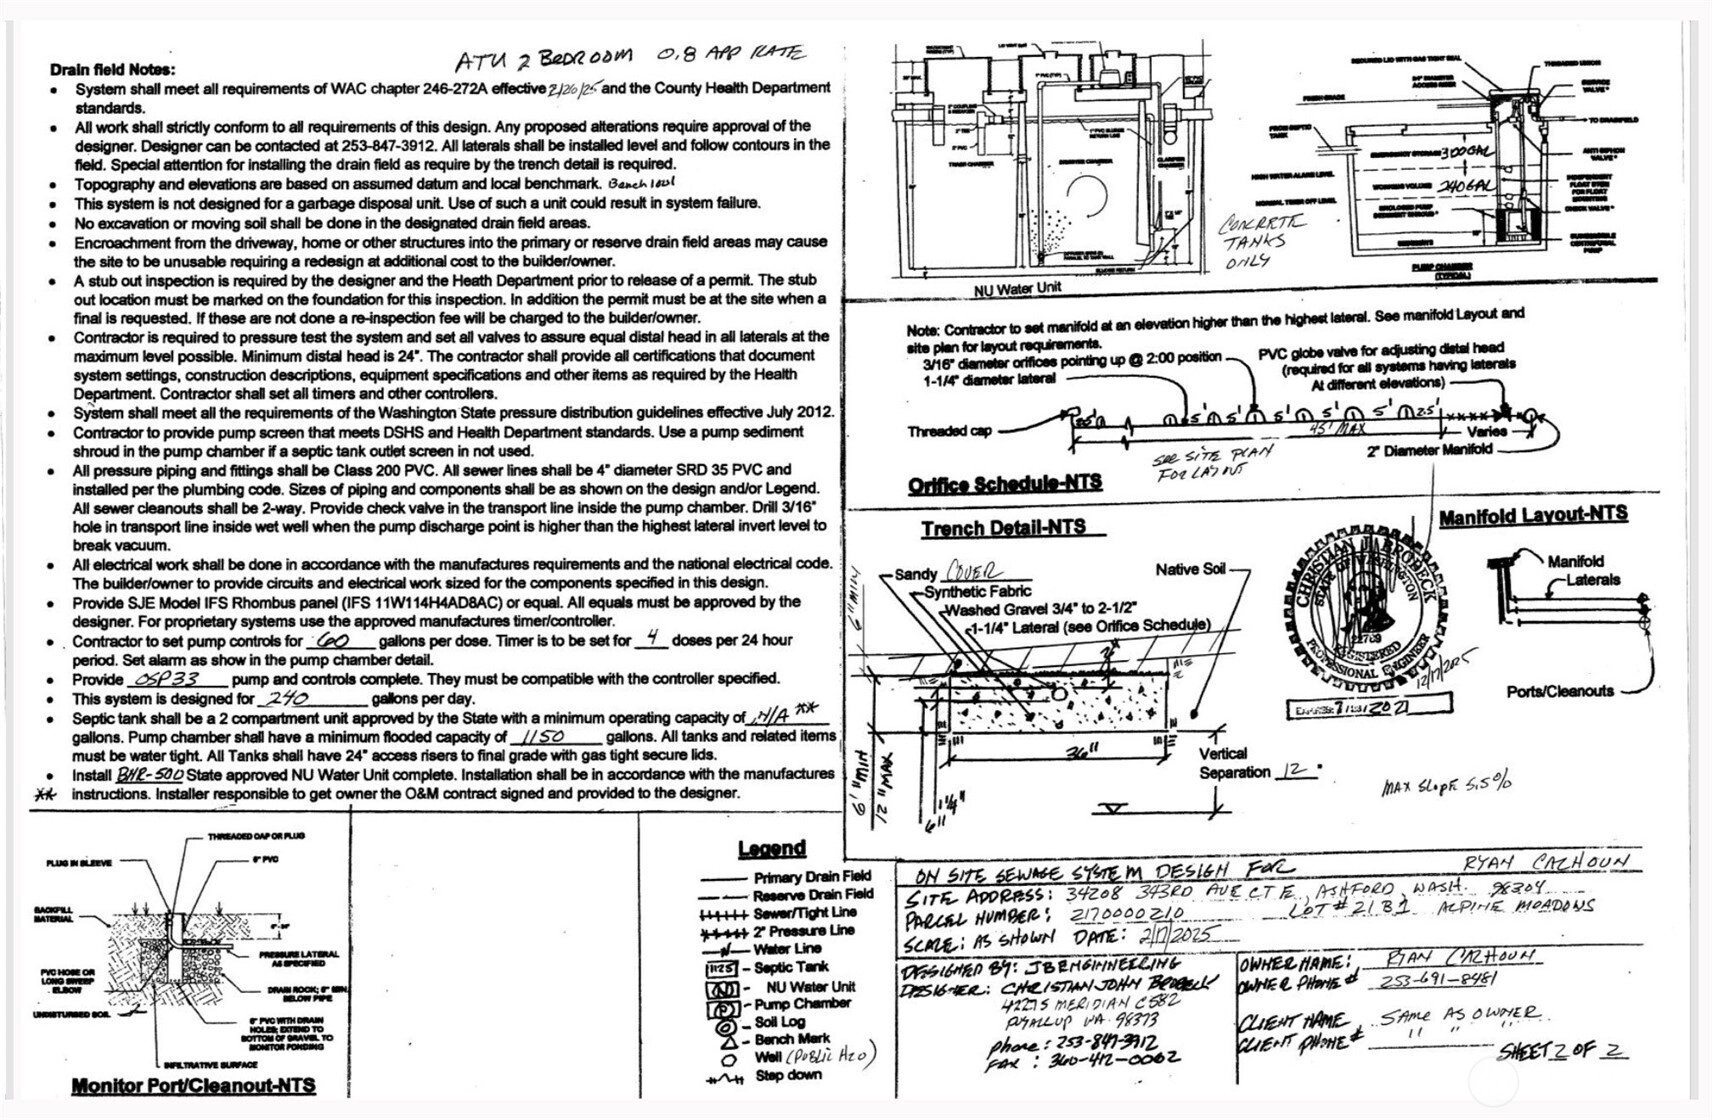 ATU 2 BEDROOM 0.8 APP RATE
Drain field Notes:
• System shall meet all requirements of WAC chapter 246-272A effective 2/26/25 and the County Health Department
standards.
• All work shall strictly conform to all requirements of this design. Any proposed alterations require approval of the
designer. Designer can be contacted at 253-847-3912. All laterals shall be installed level and follow contours in the
field. Special attention for installing the drain field as require by the trench detail is required.
• Topography and elevations are based on assumed datum and local benchmark.
• This system is not designed for a garbage disposal unit. Use of such a unit could result in system failure.
• No excavation or moving soil shall be done in the designated drain field areas.
• Encroachment from the driveway, home or other structures into the primary or reserve drain field areas may cause
the site to be unusable requiring a redesign at additional cost to the builder/owner.
• A stub out inspection is required by the designer and the Heath Department prior to release of a permit. The stub
out location must be marked on the foundation for this inspection. In addition the permit must be at the site when a
final is requested. If these are not done a re-inspection fee will be charged to the builder/owner.
• Contractor is required to pressure test the system and set all valves to assure equal distal head in all laterals at the
maximum level possible. Minimum distal head is 24". The contractor shall provide all certifications that document
system settings, construction descriptions, equipment specifications and other items as required by the Health
Department. Contractor shall set all timers and other controllers.
• System shall meet all the requirements of the Washington State pressure distribution guidelines effective July 2012.
• Contractor to provide pump screen that meets DSHS and Health Department standards. Use a pump sediment
shroud in the pump chamber if a septic tank outlet screen in not used.
• All pressure piping and fittings shall be Class 200 PVC. All sewer lines shall be 4" diameter SRD 35 PVC and
installed per the plumbing code. Sizes of piping and components shall be as shown on the design and/or Legend.
All sewer cleanouts shall be 2-way. Provide check valve in the transport line inside the pump chamber. Drill 3/16"
hole in transport line inside wet well when the pump discharge point is higher than the highest lateral invert level to
break vacuum.
• All electrical work shall be done in accordance with the manufactures requirements and the national electrical code.
The builder/owner to provide circuits and electrical work sized for the components specified in this design.
• Provide SJE Model IFS Rhombus panel (IFS 11W114H4AD8AC) or equal. All equals must be approved by the
designer. For proprietary systems use the approved manufactures timer/controller.
• Contractor to set pump controls for 60 gallons per dose. Timer is to be set for 4 doses per 24 hour
period. Set alarm as show in the pump chamber detail.
• Provide OSP33 pump and controls complete. They must be compatible with the controller specified.
• This system is designed for 240 gallons per day.
• Septic tank shall be a 2 compartment unit approved by the State with a minimum operating capacity of N/A **
gallons. Pump chamber shall have a minimum flooded capacity of 1150 gallons. All tanks and related items
must be water tight. All Tanks shall have 24" access risers to final grade with gas tight secure lids.
• Install BNR-500 State approved NU Water Unit complete. Installation shall be in accordance with the manufactures
** instructions. Installer responsible to get owner the O&M contract signed and provided to the designer.
THREADED CAP OR PLUG
PLUG IN SLEEVE
6" PVC
BACKFILL
MATERIAL
PRESSURE LATERAL
AS SPECIFIED
PVC HOSE OR
LONG SWEEP
ELBOW
DRAIN ROCK; 6" MIN.
BELOW PIPE
UNDISTURBED SOIL
6" PVC WITH DRAIN
HOLES; EXTEND TO
BOTTOM OF GRAVEL TO
MONITOR PONDING
INFILTRATIVE SURFACE
Monitor Port/Cleanout-NTS
Legend
Primary Drain Field
Reserve Drain Field
Sewer/Tight Line
2" Pressure Line
Water Line
1125 - Septic Tank
N - NU Water Unit
P - Pump Chamber
Soil Log
Bench Mark
Well (Public H2O)
Step down
TRASH CHAMBER
CLARIFIER
SLUDGE RETURN
NU Water Unit
CONCRETE
TANKS
ONLY
REQUIRED LID WITH GAS TIGHT SEAL
THREADED UNION
24" DIAMETER
ACCESS RISER
FINISH GRADE
TO DRAINFIELD
FROM SEPTIC
TANK
EMERGENCY STORAGE 300 GAL
ANTI SIPHON
VALVE*
HIGH WATER ALARM LEVEL
WORKING VOLUME 240 GAL
INDEPENDENT
FLOAT STEM
FOR FLOAT
MOUNTING
NORMAL TIMER OFF LEVEL
CHECK VALVE*
SUBMERSIBLE
CENTRIFUGAL
PUMP
PUMP CHAMBER
(TYPICAL)
Note: Contractor to set manifold at an elevation higher than the highest lateral. See manifold Layout and
site plan for layout requirements.
3/16" diameter orifices pointing up @ 2:00 position
1-1/4" diameter lateral
PVC globe valve for adjusting distal head
(required for all systems having laterals
At different elevations)
Threaded cap
5' 5' 5' 5' 5' 2.5'
45' MAX
Varies
2" Diameter Manifold
SEE SITE PLAN
FOR LAYOUT
Orifice Schedule-NTS
Trench Detail-NTS
Sandy COVER
Native Soil
Synthetic Fabric
Washed Gravel 3/4" to 2-1/2"
1-1/4" Lateral (see Orifice Schedule)
6" MIN
2"
36"
6" MIN
12" MAX
6"
1 1/4"
Vertical
Separation 12"
CHRISTIAN J BROBECK
STATE OF WASHINGTON
22789
REGISTERED
PROFESSIONAL ENGINEER
12/17/2025
Manifold Layout-NTS
Manifold
Laterals
Ports/Cleanouts
MAX SLOPE 5.5%
ON SITE SEWAGE SYSTEM DESIGN FOR RYAN CALHOUN
SITE ADDRESS: 34208 343RD AVE CT E, ASHFORD, WASH. 98304
PARCEL NUMBER: 2170000210 LOT # 21 B1 ALPINE MEADOWS
SCALE: AS SHOWN DATE: 2/17/2025
DESIGNED BY: JB ENGINEERING
DESIGNER: CHRISTIAN JOHN BROBECK
4227 S MERIDIAN C582
PUYALLUP WA. 98373
Phone: 253-847-3912
FAX: 360-412-0002
OWNER NAME: RYAN CALHOUN
OWNER PHONE # 253-691-8481
CLIENT NAME SAME AS OWNER
CLIENT PHONE # " " "
SHEET 2 OF 2